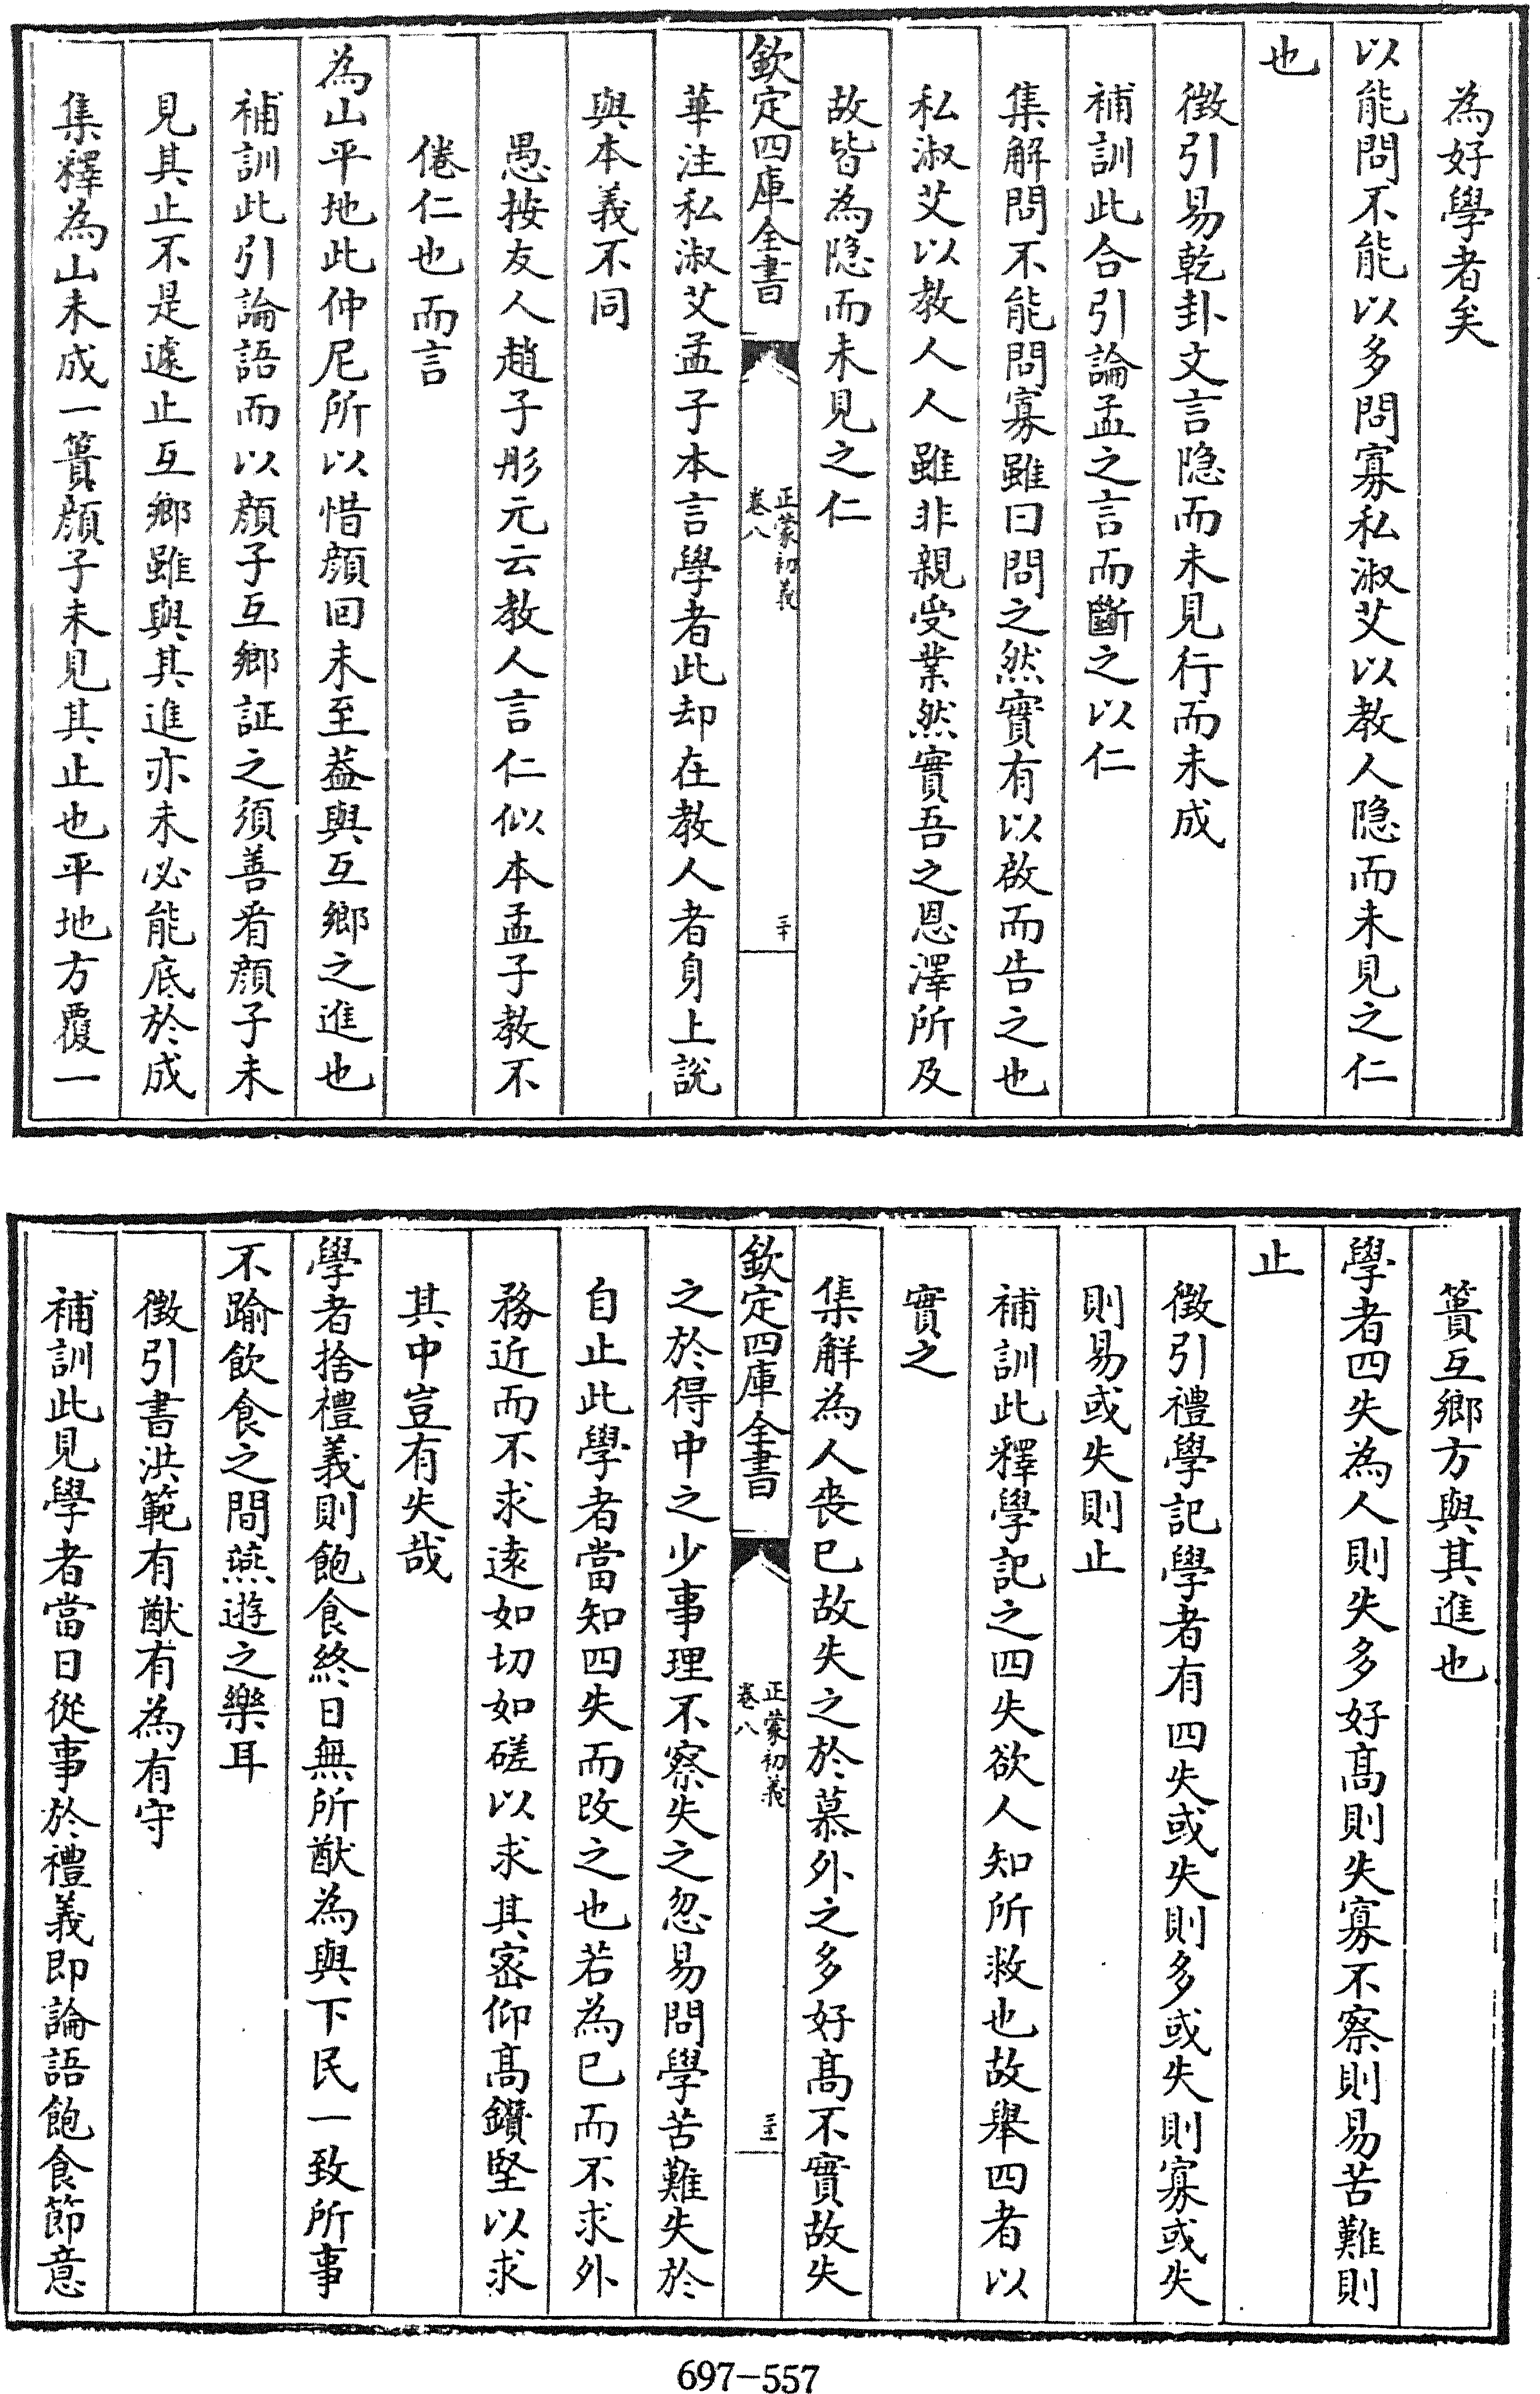 為好學者矣
以能問不能以多問寡私淑艾以教人隐而未見之仁
也
徵引易乾卦文言隐而未見行而未成
補訓此合引論孟之言而斷之以仁
集解問不能問寡雖曰問之然實有以啟而告之也
私淑艾以教人人雖非親受業然實吾之恩澤所及
故皆為隐而未見之仁
欽定四庫全書
正蒙初義
卷八
三十
華注私淑艾孟子本言學者此却在教人者身上說
與本義不同
愚按友人趙子彤元云教人言仁似本孟子教不
倦仁也而言
為山平地此仲尼所以惜顔回未至蓋與互鄉之進也
補訓此引論語而以顔子互鄉証之須善看顔子未
見其止不是遽止互鄉雖與其進亦未必能底於成
集釋為山未成一簣顔子未見其止也平地方覆一
簣互鄉方與其進也
學者四失為人則失多好髙則失寡不察則易苦難則
止
徵引禮學記學者有四失或失則多或失則寡或失
則易或失則止
補訓此釋學記之四失欲人知所救也故舉四者以
實之
集解為人喪已故失之於慕外之多好髙不實故失
欽定四庫全書
正蒙初義
卷八
三十一
之於得中之少事理不察失之忽易問學苦難失於
自止此學者當知四失而改之也若為已而不求外
務近而不求逺如切如磋以求其宻仰髙鑽堅以求
其中豈有失哉
學者捨禮義則飽食終日無所猷為與下民一致所事
不踰飲食之間燕遊之樂耳
徵引書洪範有猷有為有守
補訓此見學者當日從事於禮義即論語飽食節意
697-557